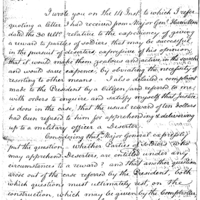 I wrote you on the 14 Inst. to which I refer
quoting a letter I had received from Major Genl. Hamilton
dated the 30 Ulto. relative to the expediency of giving
a reward to parties of soldiers that may be successful
in the pursuit of deserters, expressive of his opinion,
that it would make them zealous and active in the search
and would save expence, by obviating the necessity of
resorting to other means. I also detailed a complaint
made to the President by a Citizen, and required by me
with others to enquire and satisfy myself
in one in the case, that the usual reward of ten dollars
had been refused to him for apprehending & delivering
up to a military officer a Deserter.
Considering that Major General explicitly
put the question, whether Parties of soldiers who
may apprehend Deserters, are entitled under any
circumstances to a reward, and that another question
arise out of the case referred by the President, both
which questions must ultimately rest, on the
construction, which may be given by the Comptroller